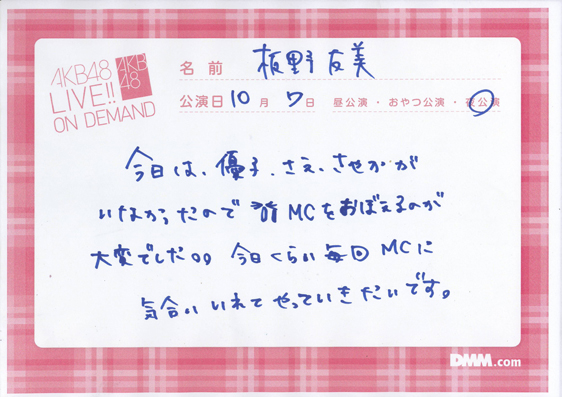 AKB48
LIVE!!
ON DEMAND
AKB
48
名前 板野友美
公演日 10月 7日 昼公演・おやつ公演・夜公演
今日は、優子、さえ、さやかが
いなかったので MCをおぼえるのが
大変でした。。今日くらい毎回 MCに
気合いいれてやっていきたいです。
DMM.com